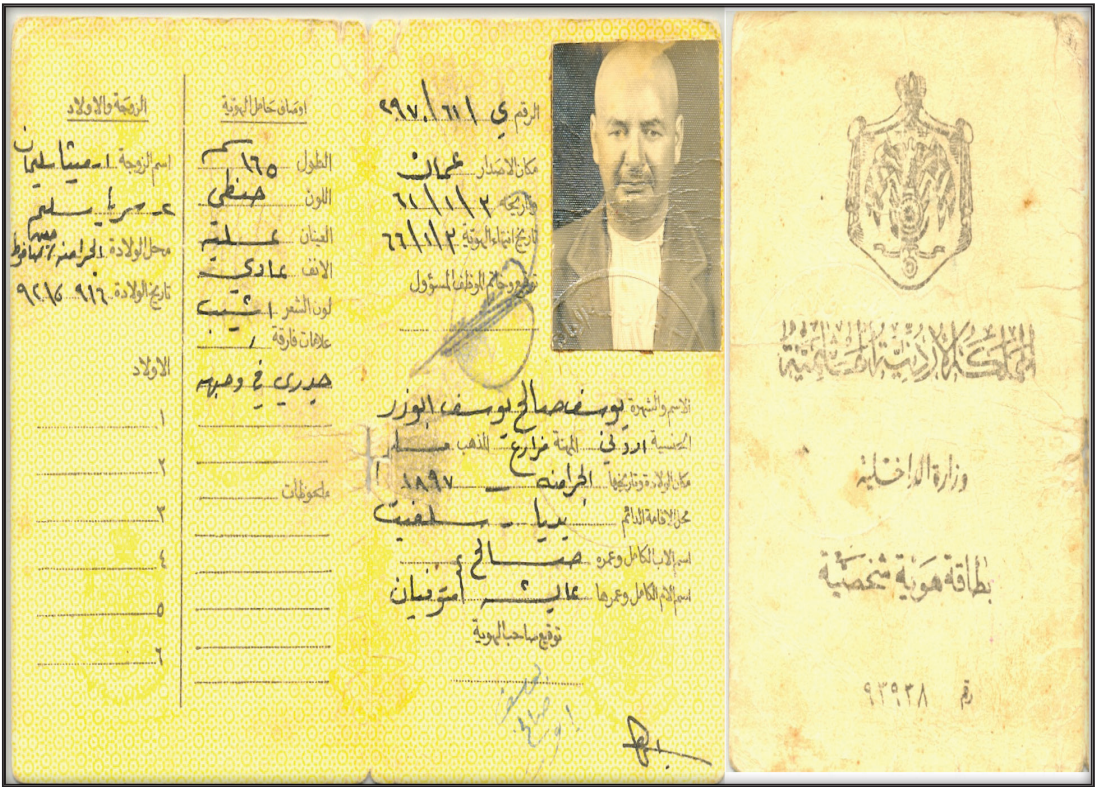 المملكة الأردنية الهاشمية
وزارة الداخلية
بطاقة هوية شخصية
رقم ٩٣٩٣٨
الرقم ي /٦١/ ٢٩٧٠
مكان الاصدار عمان
وتاريخه ٢/١/٦١
تاريخ انتهاء الهوية ٢/١/٦٦
توقيع وخاتم الموظف المسؤول
الاسم والشهرة يوسف صالح يوسف ابوزر
الجنسية اردني المهنة مزارع المذهب مسلم
مكان الولادة وتاريخها الجرامنه - ١٨٩٧
محل الاقامة الدائم بديا - سلفيت
اسم الاب الكامل وعمره صالح
اسم الام الكامل وعمرها عايشه متوفيان
توقيع صاحب الهوية
اوصاف حامل الهوية
الطول ١٦٥ سم
اللون حنطي
العينان عسلية
الانف عادي
لون الشعر اشيب
علامات فارقة
جدري في وجهه
ملحوظات
الزوجة والاولاد
اسم الزوجة سليمان
محل الولادة الجرامنه
تاريخ الولادة
الاولاد
١
٢
٣
٤
٥
٦